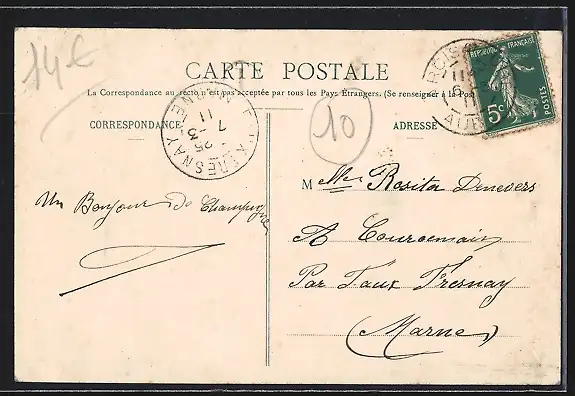 14€
CARTE POSTALE
La Correspondance au recto n'est pas acceptée par tous les Pays Étrangers. (Se renseigner à la Poste
CORRESPONDANCE
7 -3
11
25
FRESNAY
10
ADRESSE
REPUBLIQUE FRANÇAISE
5c
POSTES
AUBE
Un Bonjour de Champagne
M elle Rosita Denevers
A Courcemain
Par Faux Fresnay
(Marne)